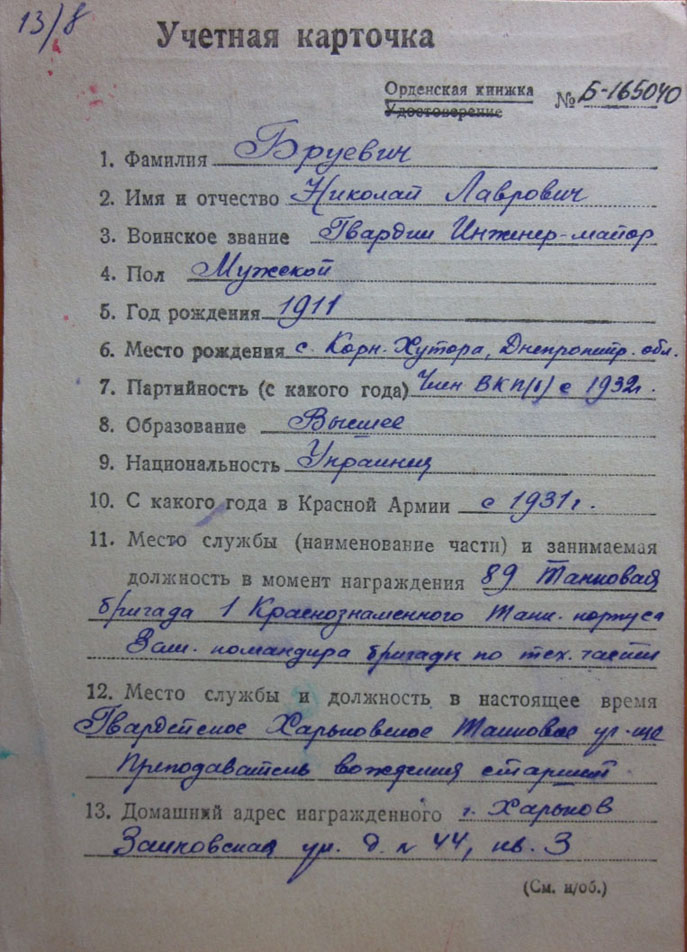 13/8
Учетная карточка
Орденская книжка
Удостоверение
№ Б-165040
1. Фамилия Бруевич
2. Имя и отчество Николай Лаврович
3. Воинское звание Гвардии Инженер-майор
4. Пол Мужской
5. Год рождения 1911
6. Место рождения с. Корн. Хутора, Днепропетр. обл.
7. Партийность (с какого года) Член ВКП(б) с 1932г.
8. Образование Высшее
9. Национальность Украинец
10. С какого года в Красной Армии с 1931г.
11. Место службы (наименование части) и занимаемая
должность в момент награждения 89 Танковая
бригада 1 Краснознаменного Танк. корпуса
Зам. командира бригады по тех. части
12. Место службы и должность в настоящее время
Гвардейское Харьковское Танковое уч-ще
Преподаватель вождения старший
13. Домашний адрес награжденного г. Харьков
ул. д. № 44, кв. 3
(См. н/об.)